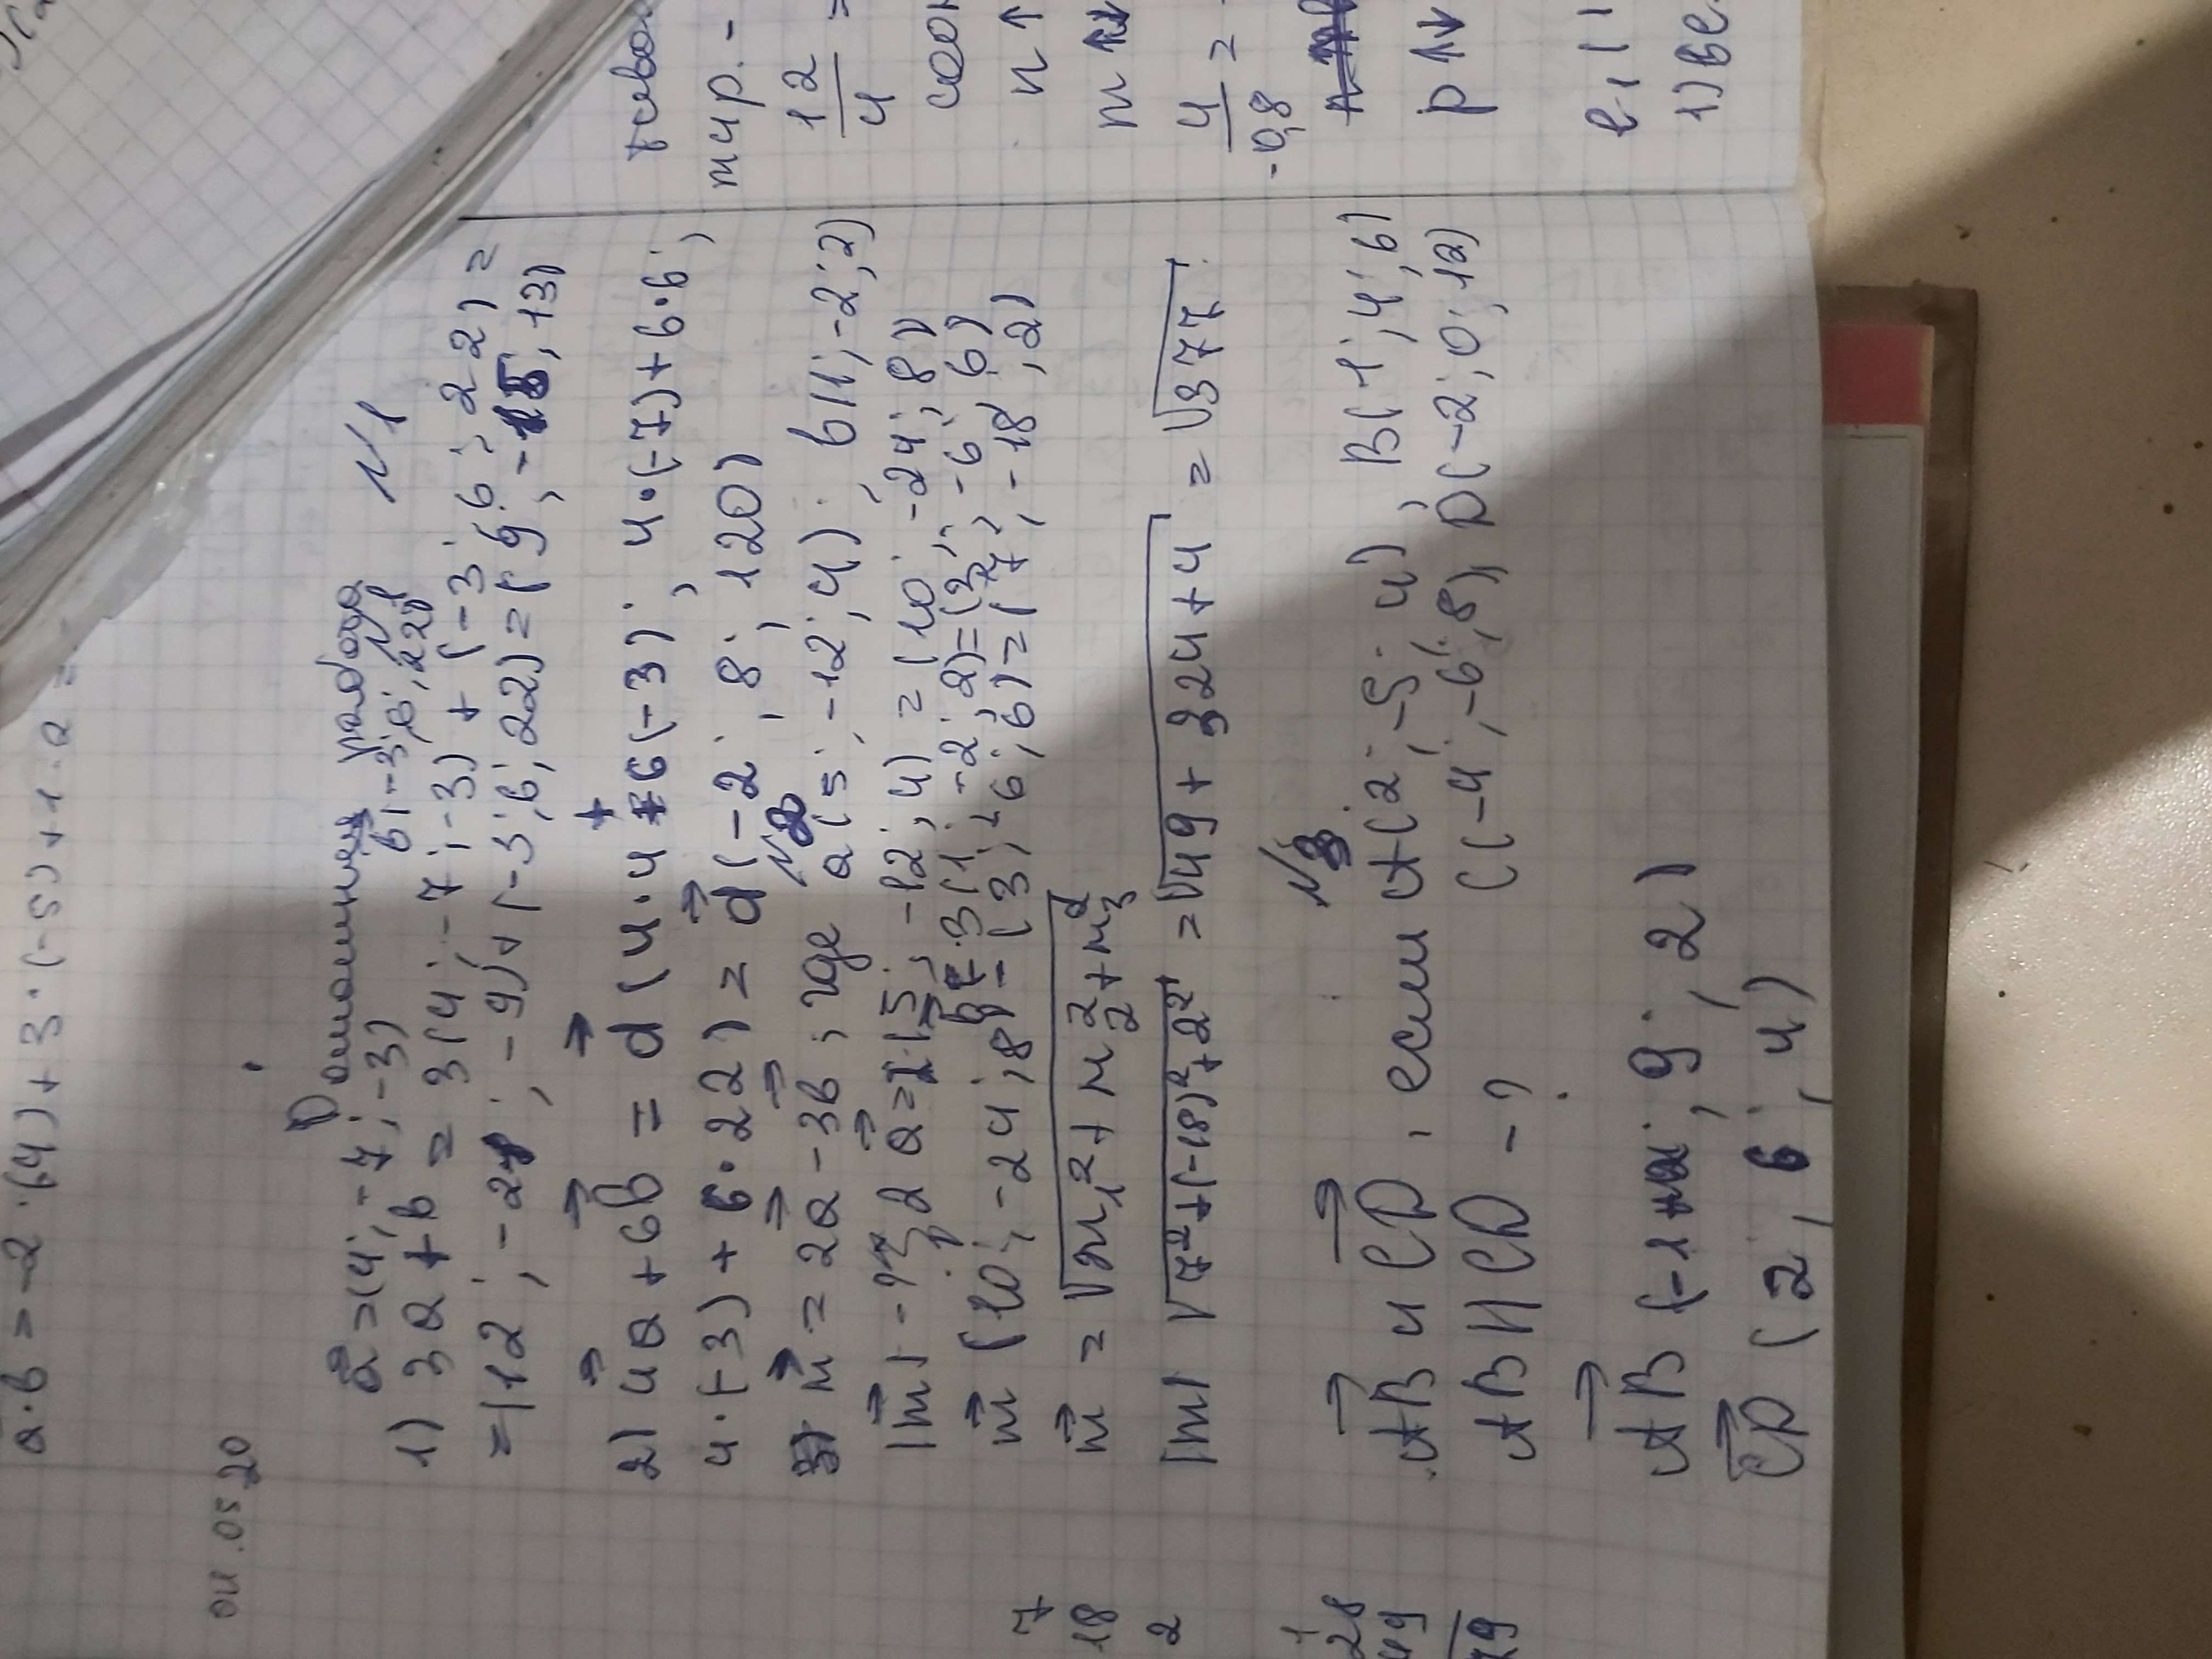 a·b = -2·(4) + 3·(-5) + 1·2 =
04.05.20
Домашняя работа
N1
a=(4;-7;-3) b(-3;6;22)
1) 3a + b = 3(4;-7;-3) + (-3;6;22) =
=(12;-21;-9)+(-3;6;22)=(9;-15;13)
2) 4a + 6b = d(4·4+6(-3); 4·(-7)+6·6;
4·(-3)+6·22) = d(-2;8;120)
N2
m = 2a - 3b, где a(5;-12;4); b(1;-2;2)
|m| -? 2a=2(5;-12;4) = (10;-24;8)
3(1;-2;2)=(3;-6;6)
m(10;-24;8)-(3;-6;6)=(7;-18;2)
m = √m₁²+m₂²+m₃²
|m| √7²+(-18)²+2² = √49+324+4 = √377
7
18
2
N3
AB и CD, если A(2;-5;4), B(1;4;6)
AB || CD -? C(-4;-6;8), D(-2;0;12)
AB(-1;9;2)
CD(2;6;4)
28
49
12
4
=
n↑
m↑↓
4
-0,8
=
p↑↓